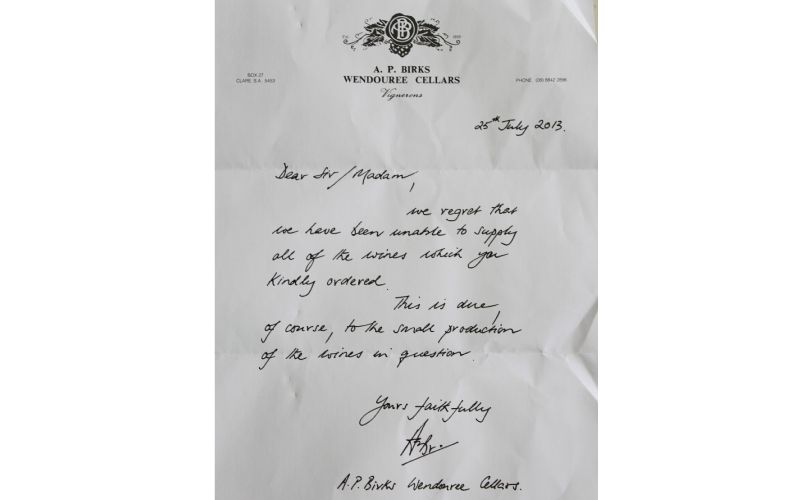 Est.
APB
A. P. BIRKS
WENDOUREE CELLARS
Vignerons
BOX 27
CLARE S.A. 5453
PHONE (08) 8842 2896
25th July 2013.
Dear Sir/Madam,
we regret that
we have been unable to supply
all of the wines which you
kindly ordered.
This is due,
of course, to the small production
of the wines in question.
Yours faithfully
A.P. Birks Wendouree Cellars.